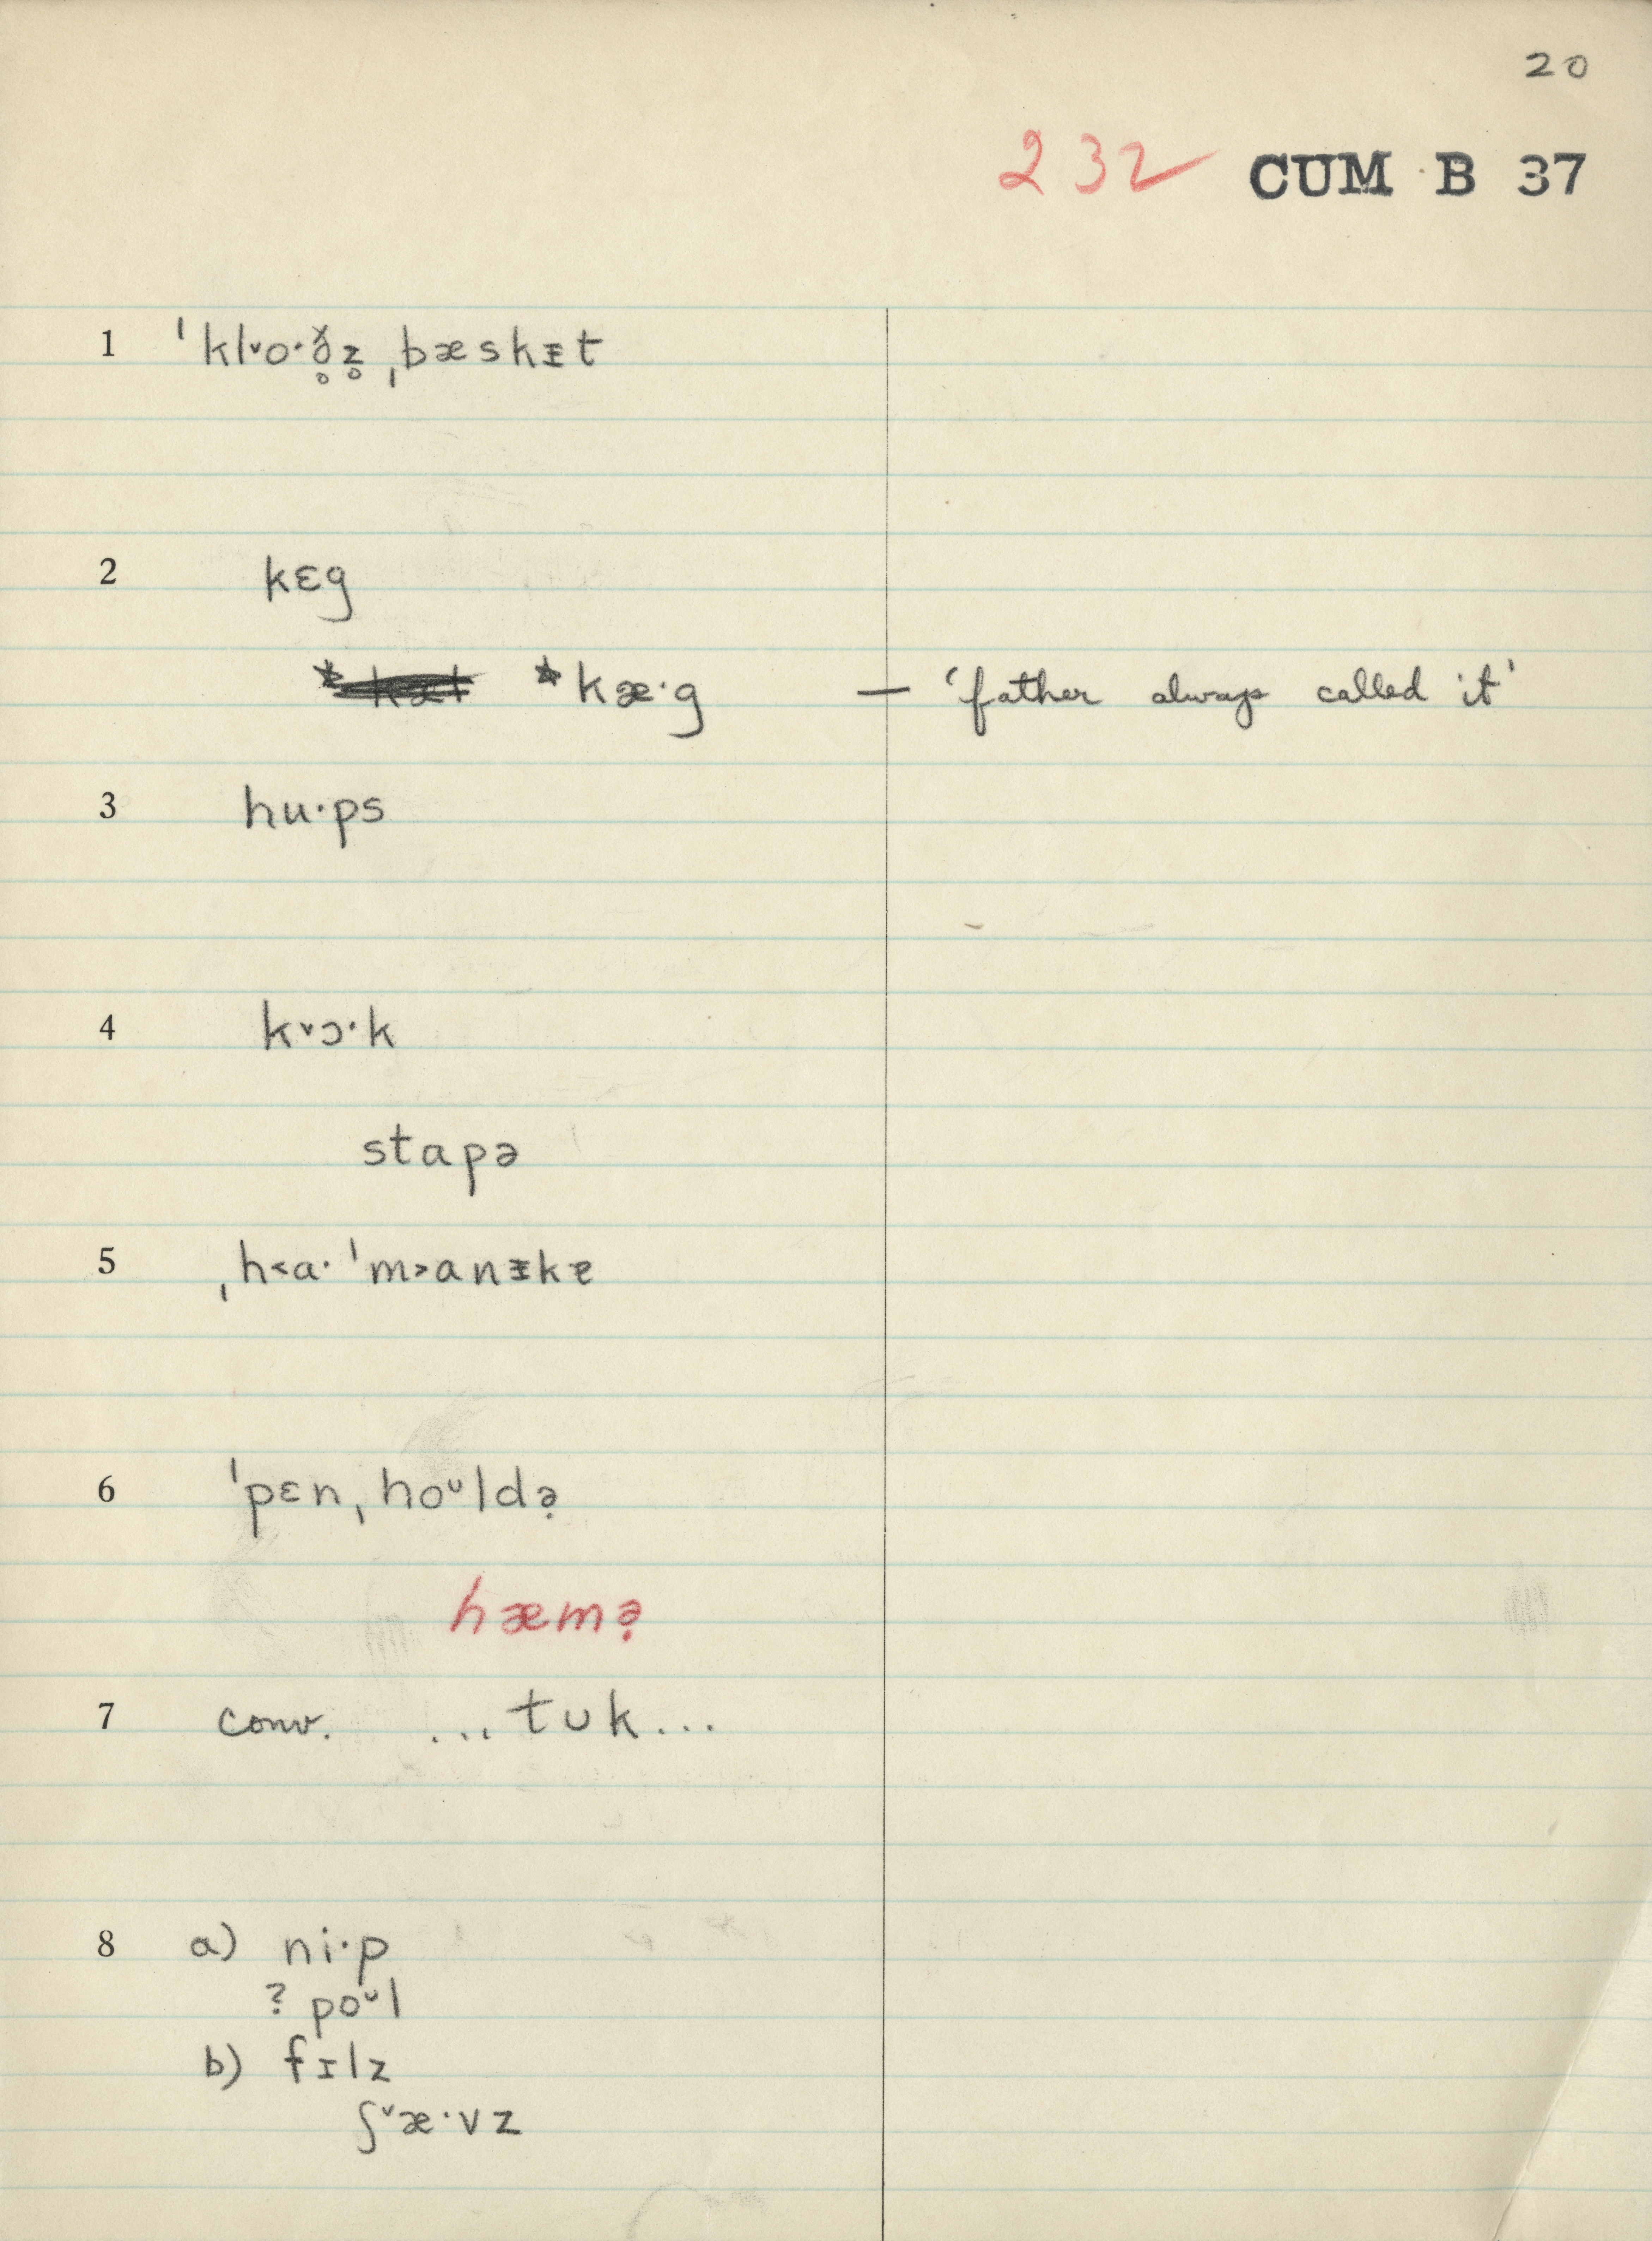 20
232 CUM B 37
1 ˈkl˅o·ð̥z̥ ˌbæskᵻt
2 kɛg
*kæ·g — 'father always called it'
3 hu·ps
4 k˅ɔ·k
stapə
5 ˌh˂a· ˈm˃anᵻkɐ
6 ˈpɛn ˌhoᴜldə̣
hæmə̣
7 conv. ...tᴜk...
8 a) ni·p
? poᴜl
b) fɪlz
ʃ˅æ·vz